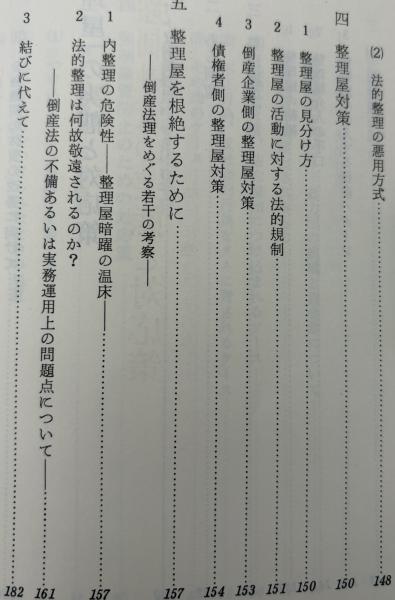 ⑵ 法的整理の悪用方式……148
四 整理屋対策……150
1 整理屋の見分け方……150
2 整理屋の活動に対する法的規制……151
3 倒産企業側の整理屋対策……153
4 債権者側の整理屋対策……154
五 整理屋を根絶するために……157
——倒産法理をめぐる若干の考察——
1 内整理の危険性——整理屋暗躍の温床——……157
2 法的整理は何故敬遠されるのか?
——倒産法の不備あるいは実務運用上の問題点について——……161
3 結びに代えて……182